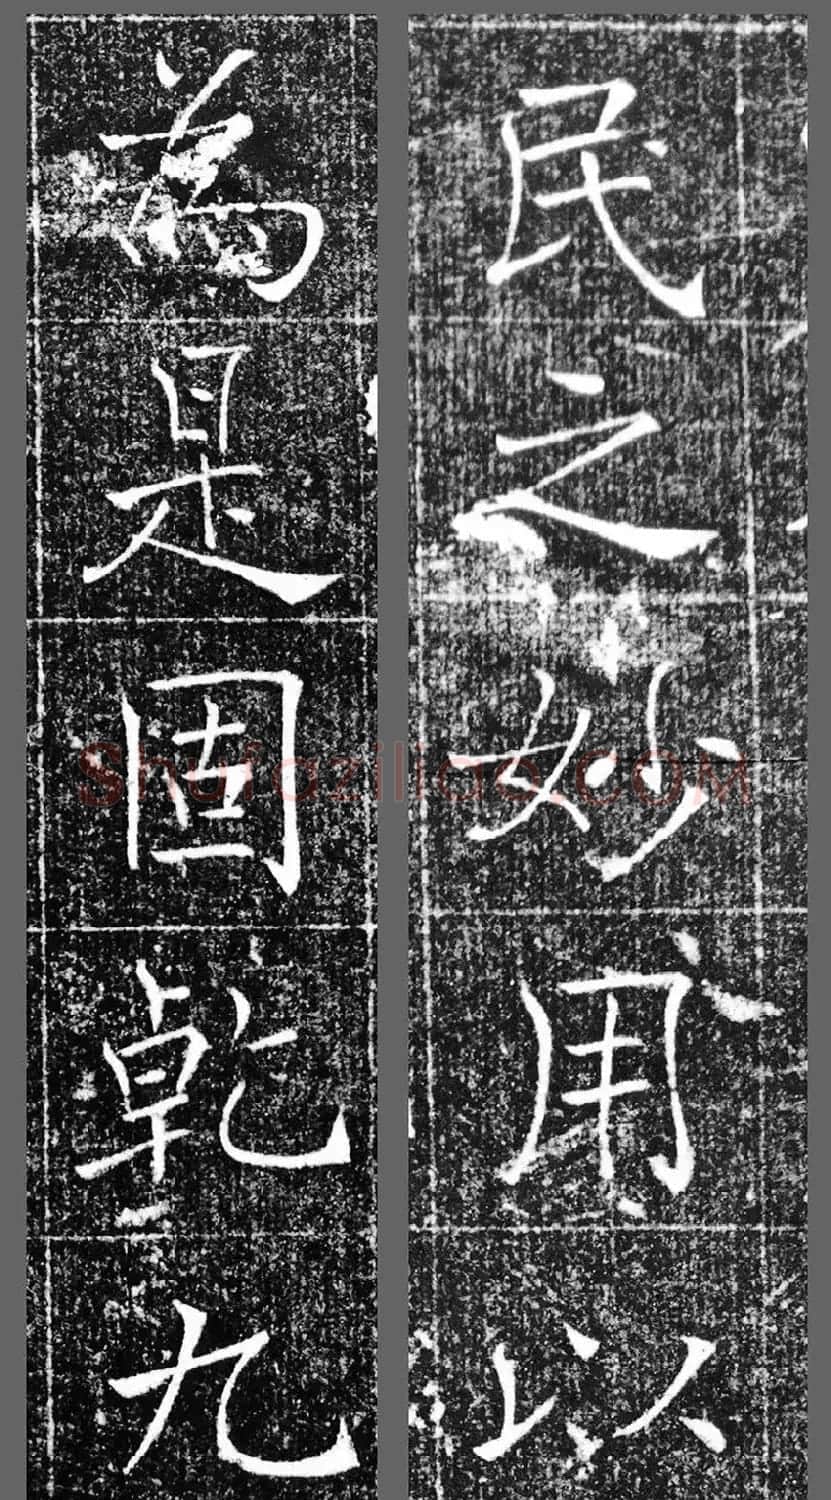 民之妙用以
為是固乾九
Shufaziliao.COM